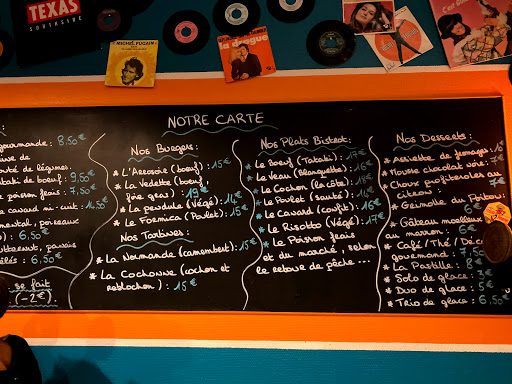 TEXAS
MICHEL FUGAIN
NOTRE CARTE
gourmande : 8.50€
de légumes.
de bœuf : 9,50€
poisson frais : 7,50€
canard mi-cuit : 14.50€
poireaux
6.50€
butternut, panais
6.50€
se fait
(-2€).
Nos Burgers :
* L'Arrosoir (bœuf) : 15€
* La Vedette (bœuf,
foie gras) 19€
* La pendule (Végé) : 14€
* Le Formica (Poulet) : 15€
Nos Tartines :
* La Normande (camembert) : 15€
* La Cochonne (cochon et
reblochon) : 15€
Nos Plats Bistrot :
* Le Bœuf (Tataki) : 17€
* Le Veau (Blanquette) : 16€
* Le Cochon (la côte) : 18€
* Le Poulet (sauté) : 14€
* Le Canard (confit) : 16€
* Le Risotto (Végé) : 17€
* Le Poisson frais
et du marché : selon
le retour de pêche ...
Nos Desserts :
* Assiette de fromages :
* Mousse chocolat noir : 7€
* Choux profiteroles au
citron : 7€
* Grimolle du Poitou
6€
* Gâteau moelleux
marron : 6€
* Café / Thé / Déca
gourmand : 7.50€
* La Pastille : 8€
* Solo de glace : 3€
* Duo de glace : 5€
* Trio de glace : 6,50€